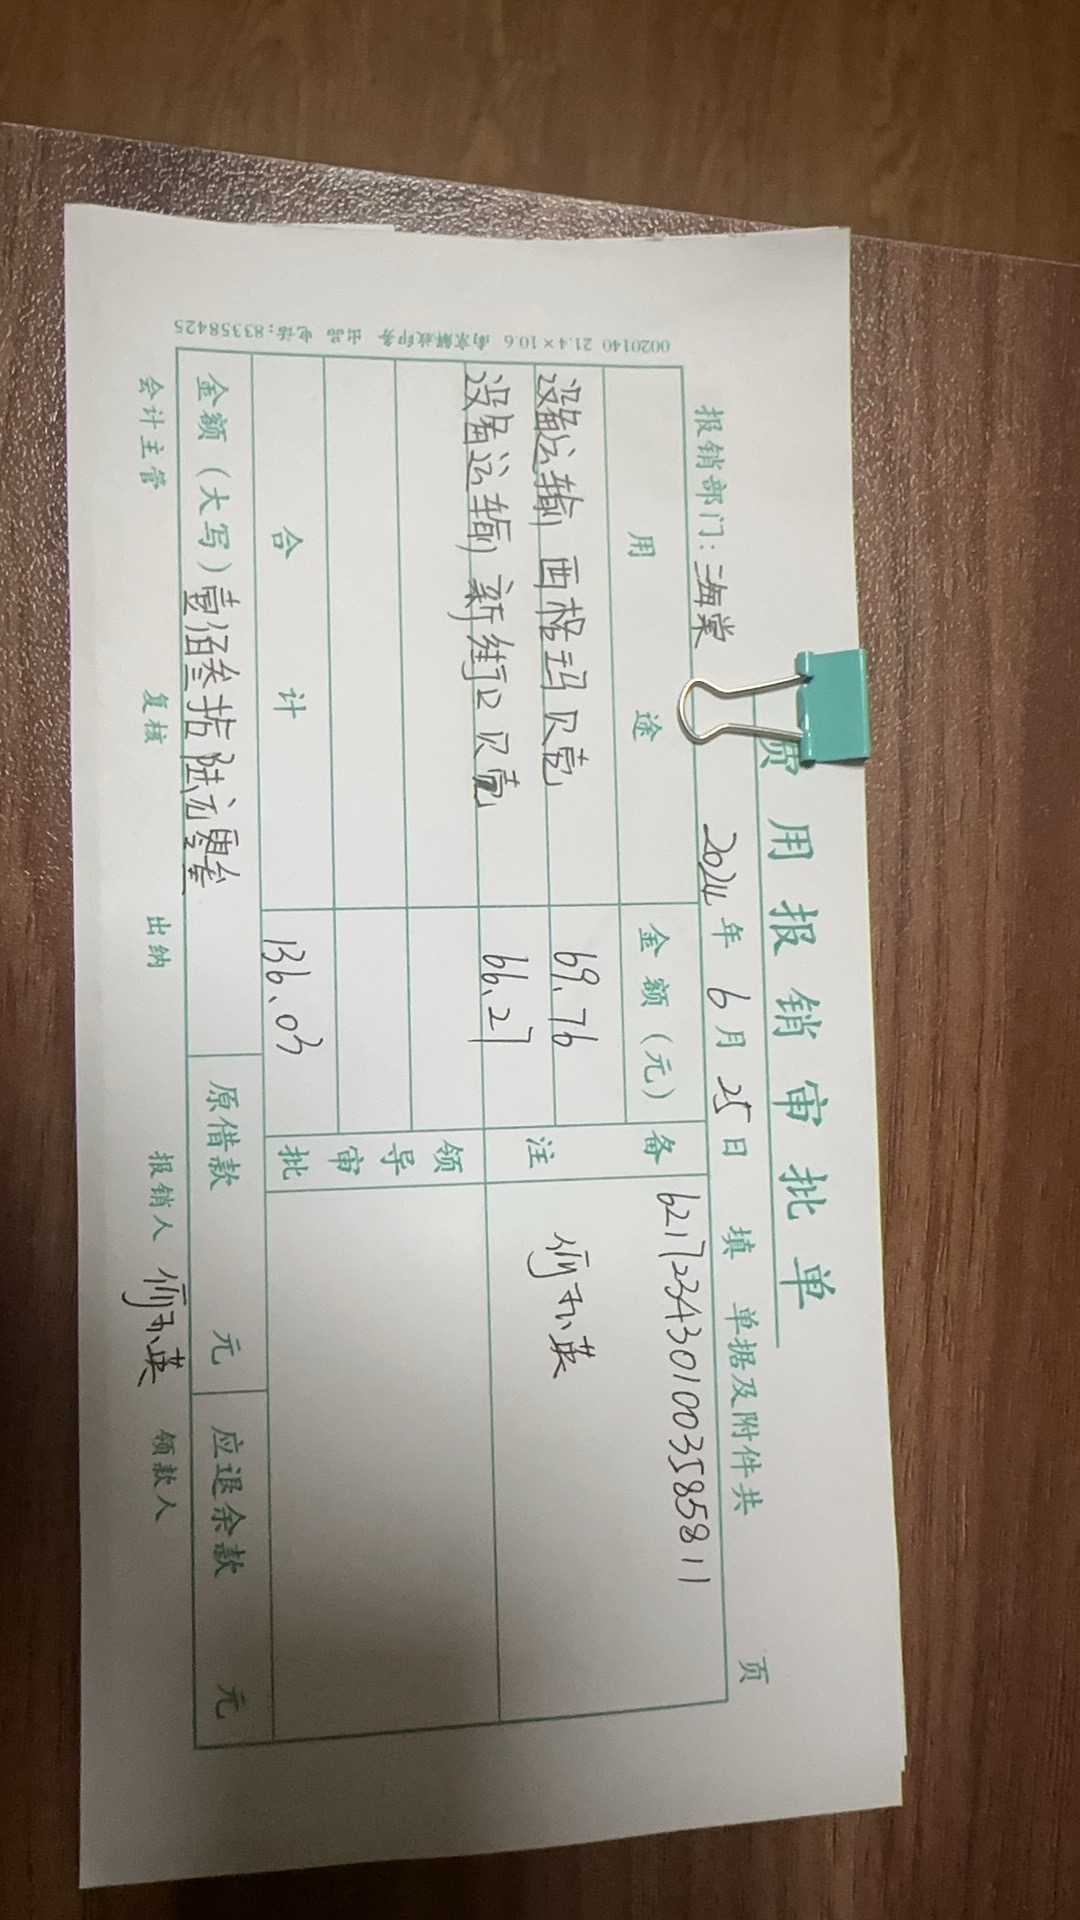 费用报销审批单
报销部门：海棠 2024年6月25日 填 单据及附件共 页
用途 金额（元） 备注 6217234301003585811
设备运输 西格玛贝壳 69.76
设备运输 新街口贝壳 66.27
领导审批
合计 136.03
金额（大写）壹佰叁拾陆元零叁 原借款 元 应退余款 元
会计主管 复核 出纳 报销人 领款人
0020140 21.4×10.6 南京解放印务 出品 电话：83358425